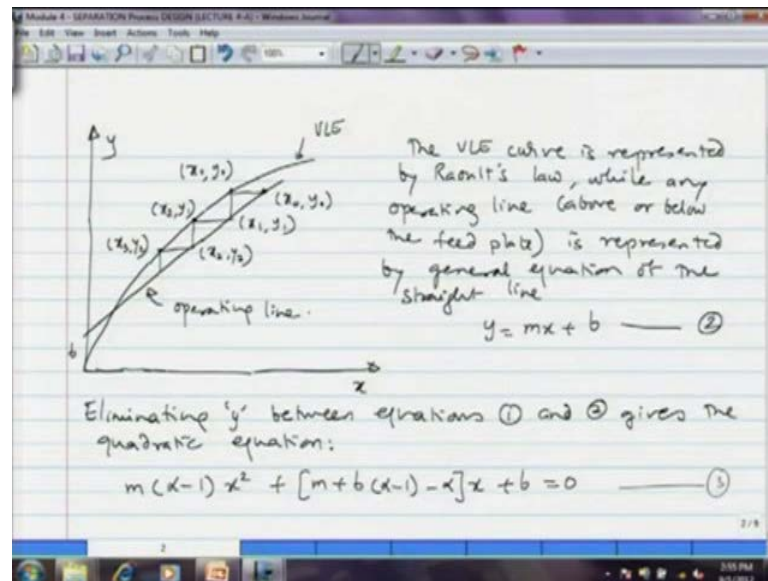 Module 4 - SEPARATION Process DESIGN (LECTURE 4-A) - Windows Journal
File Edit View Insert Actions Tools Help
y
VLE
(x₁, y₀)
(x₀, y₀)
(x₂, y₁)
(x₁, y₁)
(x₃, y₂)
(x₂, y₂)
operating line.
b
x
The VLE curve is represented
by Raoult's law, while any
operating line (above or below
the feed plate) is represented
by general equation of the
straight line
y = mx + b ②
Eliminating 'y' between equations ① and ② gives the
quadratic equation:
m(α-1)x² + [m+b(α-1)-α]x + b = 0 ③
2/9
2
2:55 PM